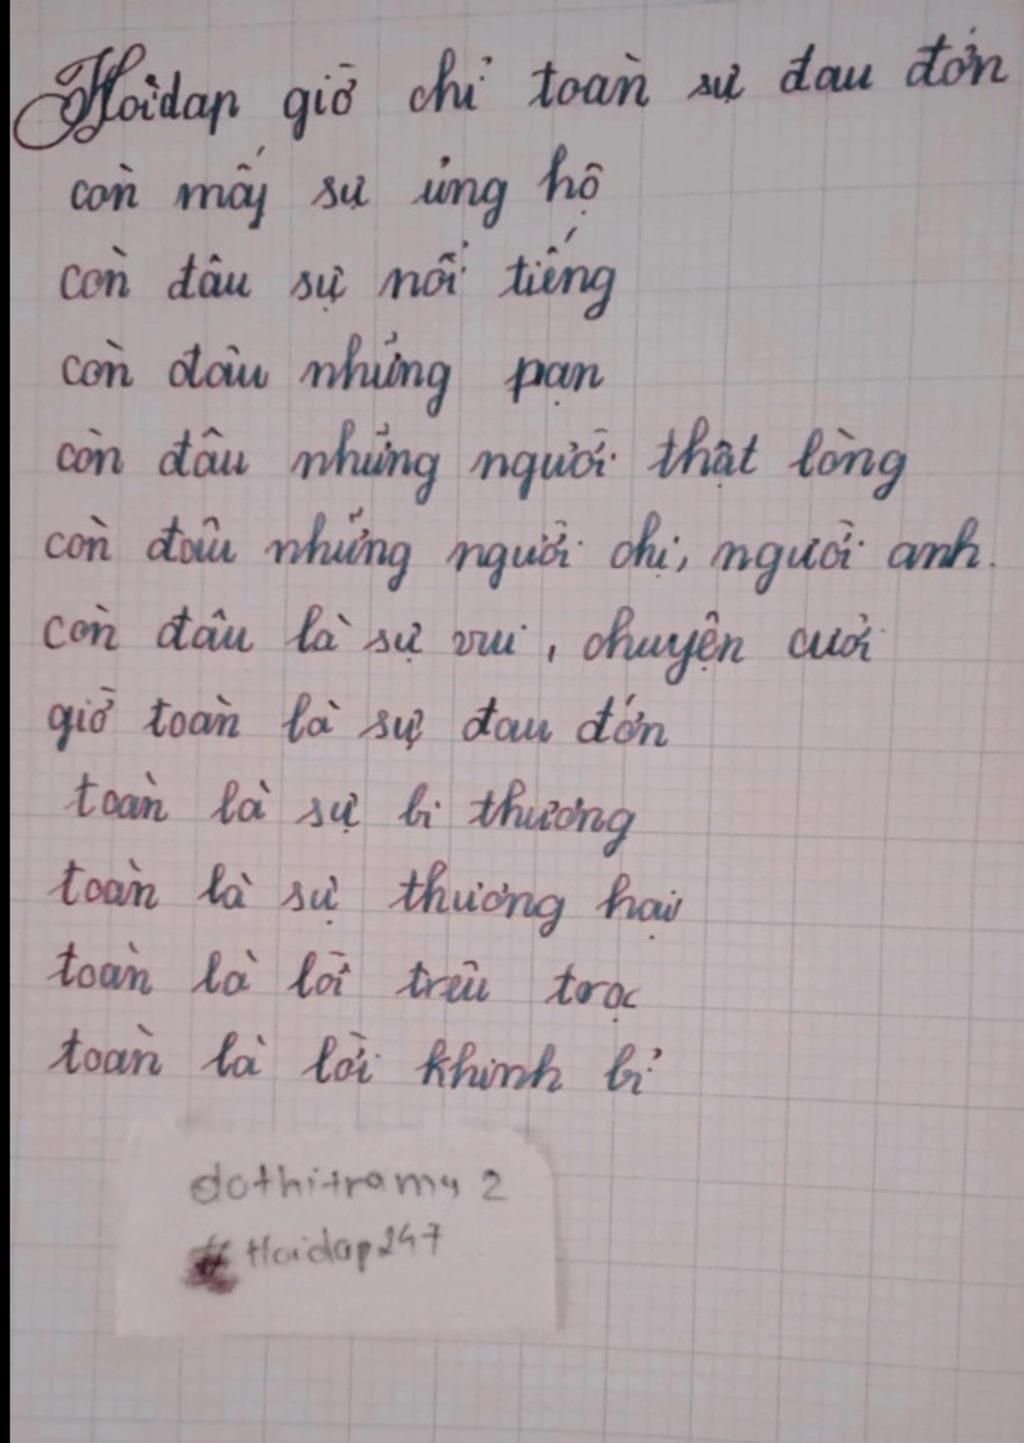 Hoidap giờ chỉ toàn sự đau đớn
còn mấy sự ủng hộ
còn đâu sự nổi tiếng
còn đâu những pạn
còn đâu những người thật lòng
còn đâu những người chị, người anh.
còn đâu là sự vui, chuyện cười
giờ toàn là sự đau đớn
toàn là sự bi thương
toàn là sự thương hại
toàn là lời trêu trọc
toàn là lời khinh bỉ
dothitramy2
#Hoidap247